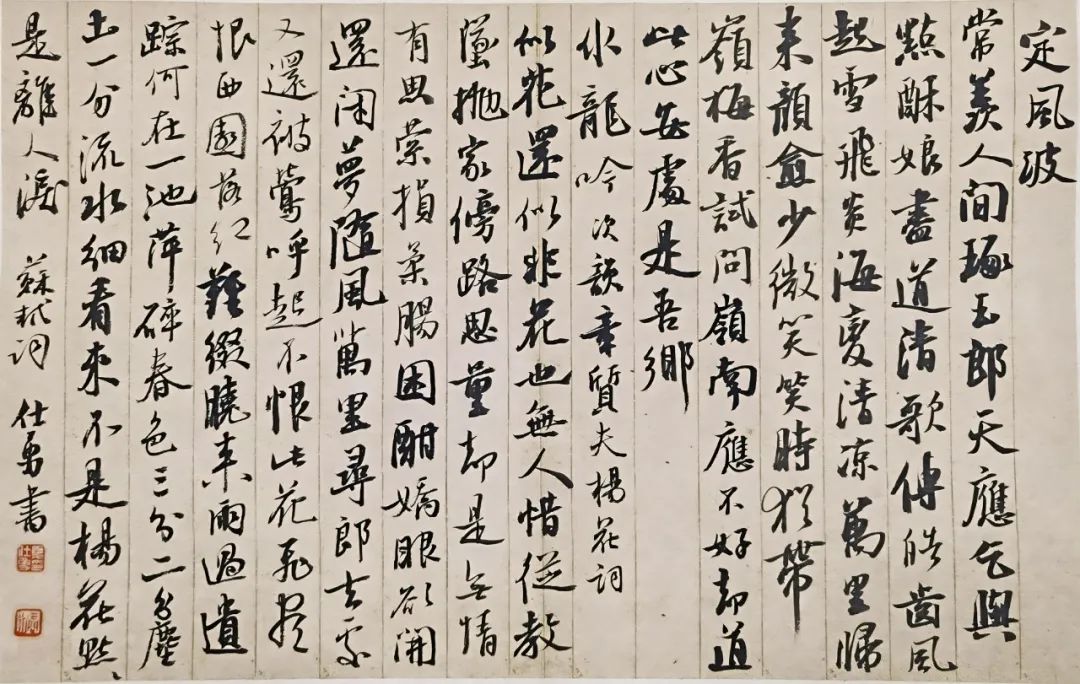 定風波
常羨人間琢玉郎天應乞與
點酥娘盡道清歌傳皓齒風
起雪飛炎海變清涼萬里歸
來顏愈少微笑笑時猶帶
嶺梅香試問嶺南應不好却道
此心安處是吾鄉
水龍吟次韻章質夫楊花詞
似花還似非花也無人惜從教
墜抛家傍路思量却是無情
有思縈損柔腸困酣嬌眼欲開
還閉夢隨風萬里尋郎去處
又還被鶯呼起不恨此花飛盡
恨西園落紅難綴曉來雨過遺
踪何在一池萍碎春色三分二分塵
土一分流水細看來不是楊花點、
是離人淚 蘇軾詞 仕勇書